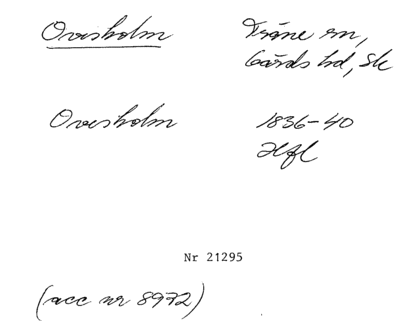 Ovesholm
Träne sn,
Gärds hd, Sk
Ovesholm
1836-40
Hfl
Nr 21295
(acc nr 8972)